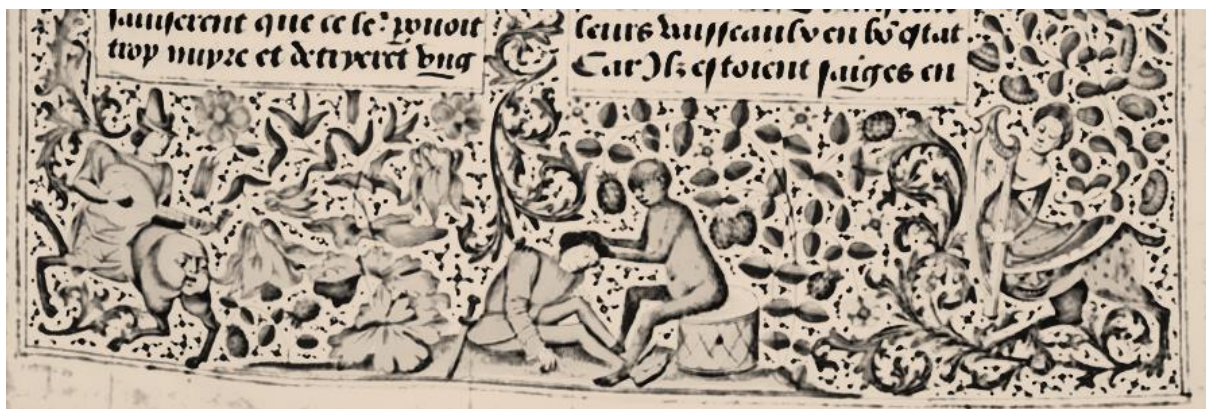 que ce leʳ pouoit
trop nuyre et vng
leurs vaisseaulx en bō estat
Car Ilz estoient saiges en